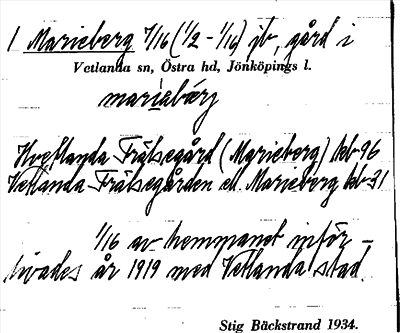 1 Marieberg 7/16 (1/2 - 1/16) jb, gård i
Vetlanda sn, Östra hd, Jönköpings l.
mariabärj
Hvetlanda Frälsegård (Marieberg) kb-96
Vetlanda Frälsegården el. Marieberg kb-31
1/16 av hemmanet inför-
livades år 1919 med Vetlanda stad.
Stig Bäckstrand 1934.